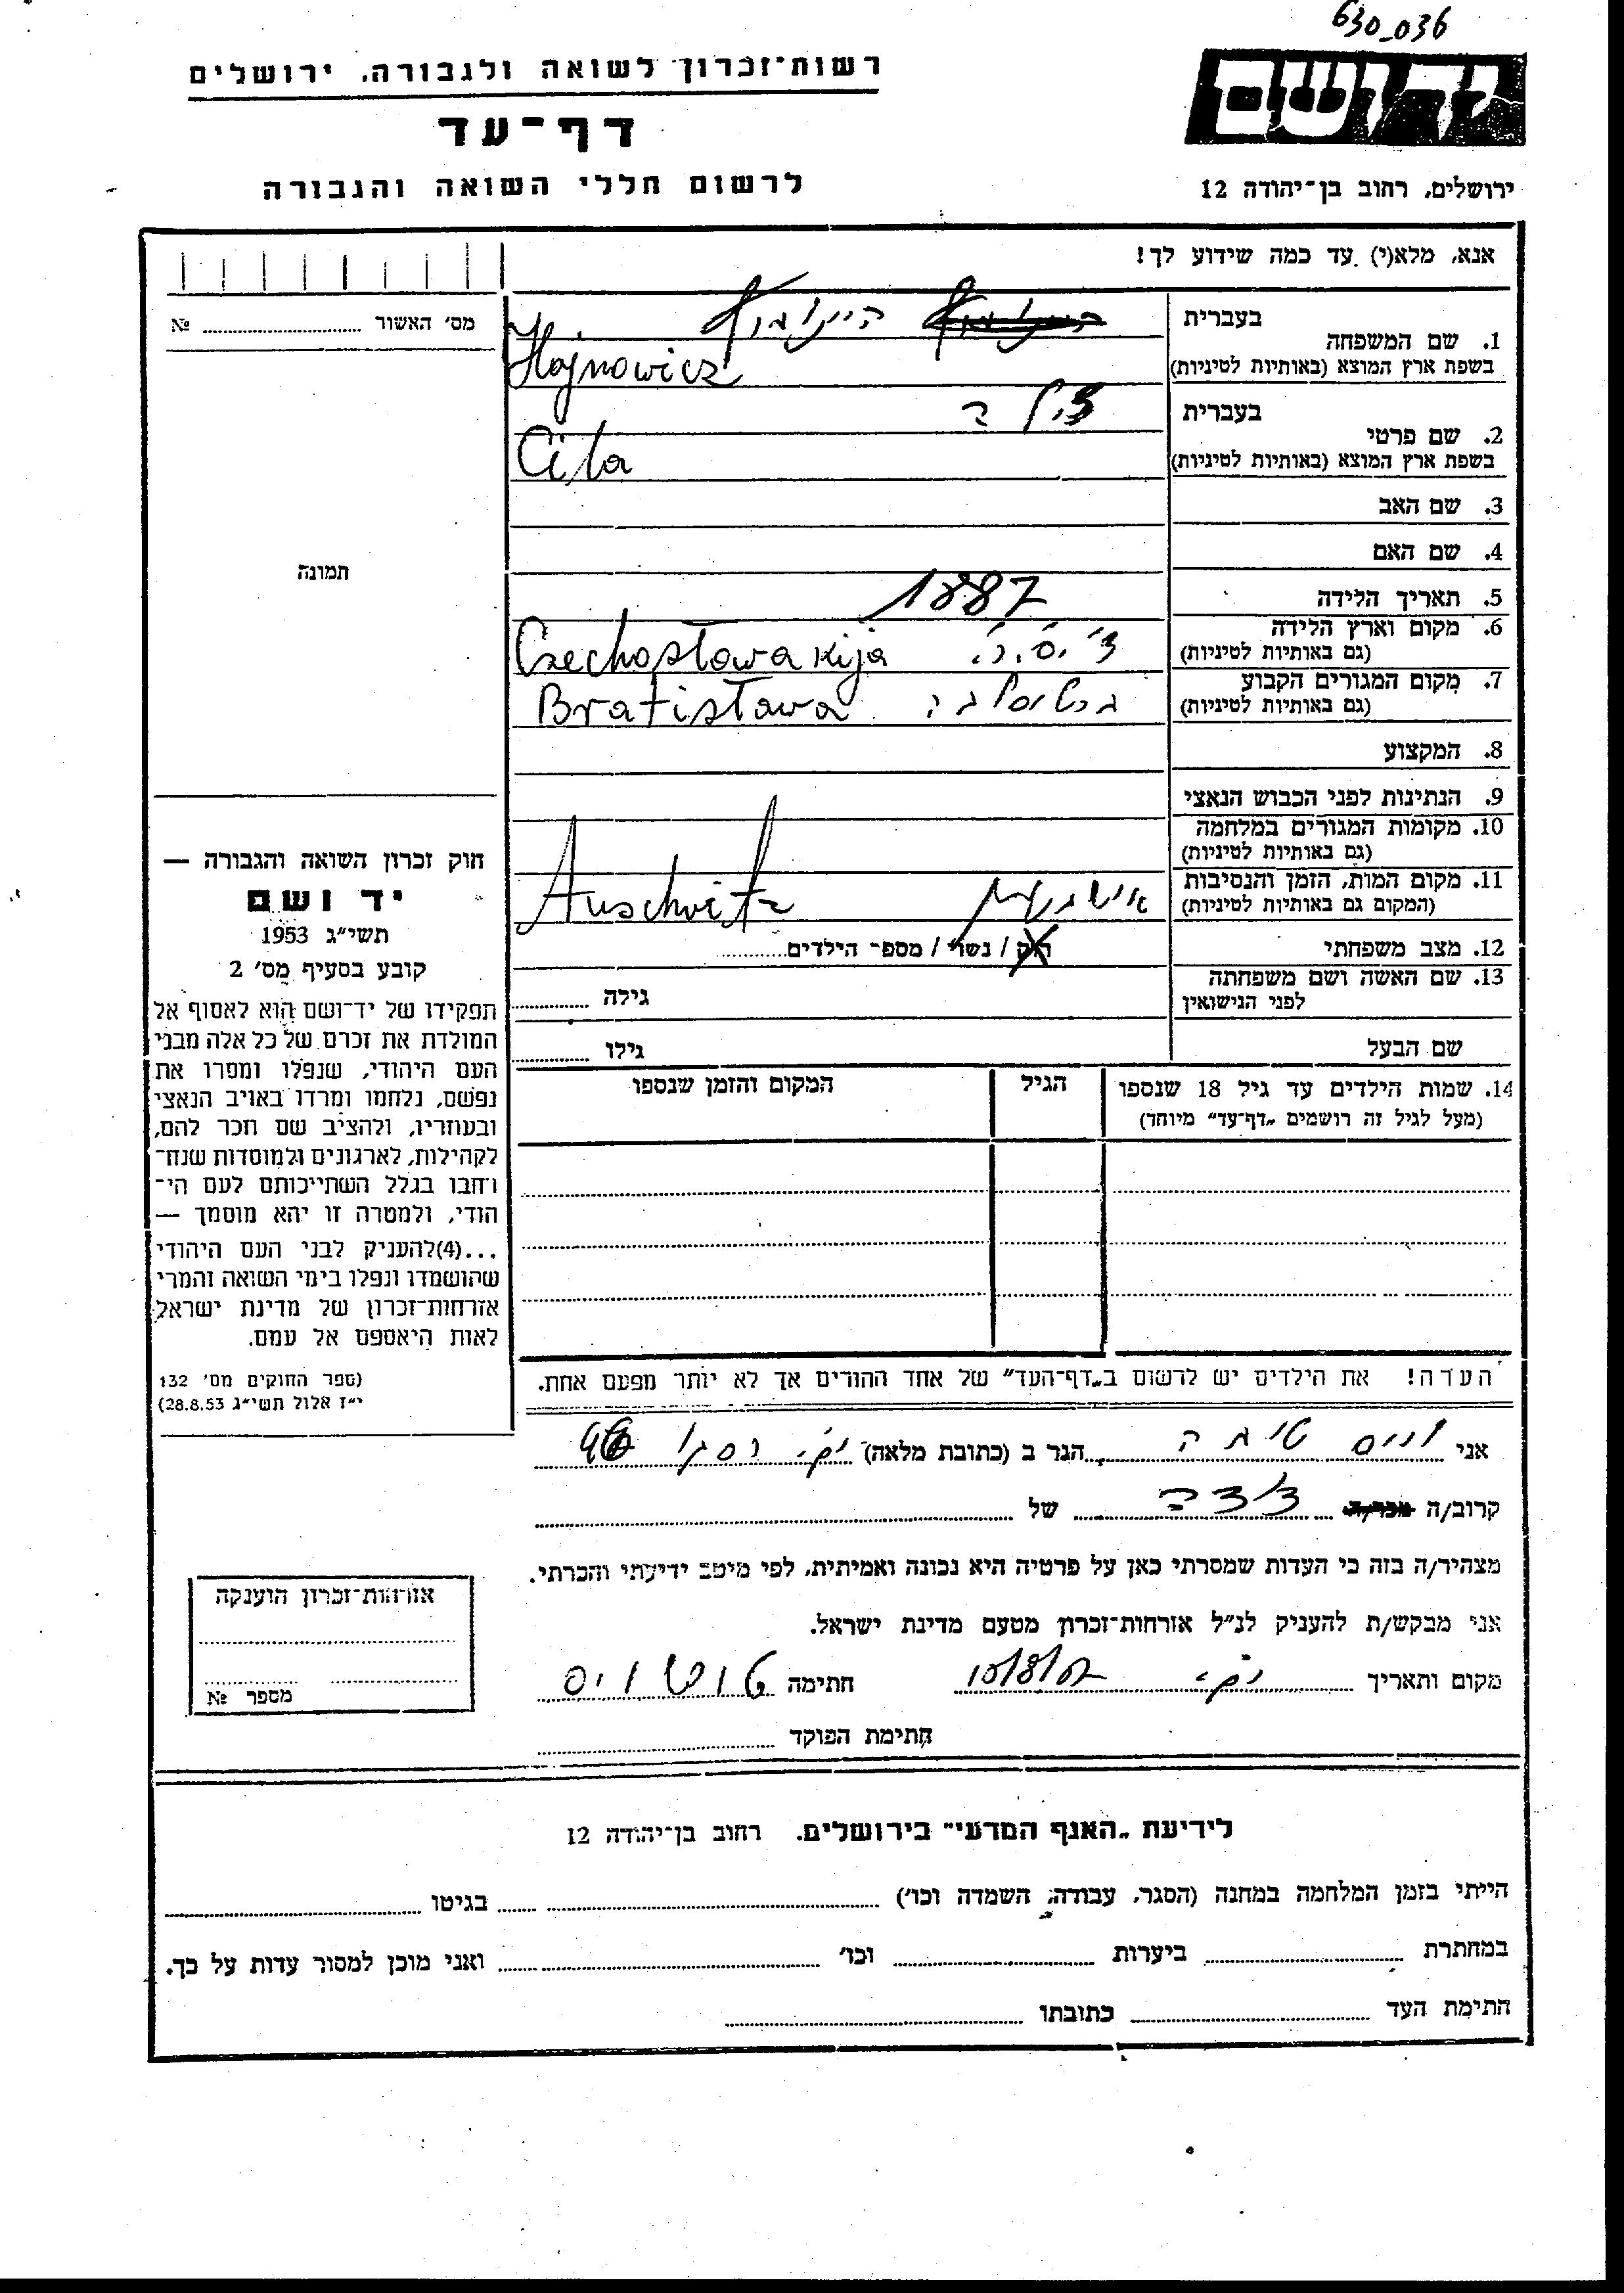 630_036
יד ושם
רשות־זכרון לשואה ולגבורה, ירושלים
דף־עד
לרשום חללי השואה והגבורה
ירושלים, רחוב בן־יהודה 12
אנא, מלא(י) עד כמה שידוע לך!
מס׳ האשור № 
1. שם המשפחה
בעברית
בשפת ארץ המוצא (באותיות לטיניות) Hajnowicz
2. שם פרטי
בעברית צילה
בשפת ארץ המוצא (באותיות לטיניות) Cila
3. שם האב
4. שם האם
תמונה
5. תאריך הלידה 1887
6. מקום וארץ הלידה
(גם באותיות לטיניות) צ׳.ס.ר. Czechosławakija
7. מקום המגורים הקבוע
(גם באותיות לטיניות) Bratisława
8. המקצוע
9. הנתינות לפני הכבוש הנאצי
10. מקומות המגורים במלחמה
(גם באותיות לטיניות)
11. מקום המות, הזמן והנסיבות
(המקום גם באותיות לטיניות) Auschwitz
12. מצב משפחתי רוק / נשוי / מספר הילדים
13. שם האשה ושם משפחתה
לפני הנישואין גילה
שם הבעל גילו
14. שמות הילדים עד גיל 18 שנספו הגיל המקום והזמן שנספו
(מעל לגיל זה רושמים „דף־עד״ מיוחד)
חוק זכרון השואה והגבורה —
יד ושם
תשי״ג 1953
קובע בסעיף מס׳ 2
תפקידו של יד־ושם הוא לאסוף אל
המולדת את זכרם של כל אלה מבני
העם היהודי, שנפלו ומסרו את
נפשם, נלחמו ומרדו באויב הנאצי
ובעוזריו, ולהציב שם וזכר להם,
לקהילות, לארגונים ולמוסדות שנח־
רבו בגלל השתייכותם לעם הי־
הודי, ולמטרה זו יהא מוסמך —
...(4)להעניק לבני העם היהודי
שהושמדו ונפלו בימי השואה והמרי
אזרחות־זכרון של מדינת ישראל
לאות היאספם אל עמם.
(ספר החוקים מס׳ 132
י״ז אלול תשי״ג 28.8.53)
הערה! את הילדים יש לרשום ב„דף־העד״ של אחד ההורים אך לא יותר מפעם אחת.
אני וייס טובה הגר ב (כתובת מלאה)
קרוב/ה דודה של
מצהיר/ה בזה כי העדות שמסרתי כאן על פרטיה היא נכונה ואמיתית, לפי מיטב ידיעתי והכרתי.
אני מבקש/ת להעניק לנ״ל אזרחות־זכרון מטעם מדינת ישראל.
מקום ותאריך חתימה
חתימת הפוקד
אזרחות־זכרון הוענקה
מספר №
לידיעת „האגף המדעי״ בירושלים. רחוב בן־יהודה 12
הייתי בזמן המלחמה במחנה (הסגר, עבודה, השמדה וכו׳) בגיטו
במחתרת ביערות וכו׳ ואני מוכן למסור עדות על כך.
חתימת העד כתובתו